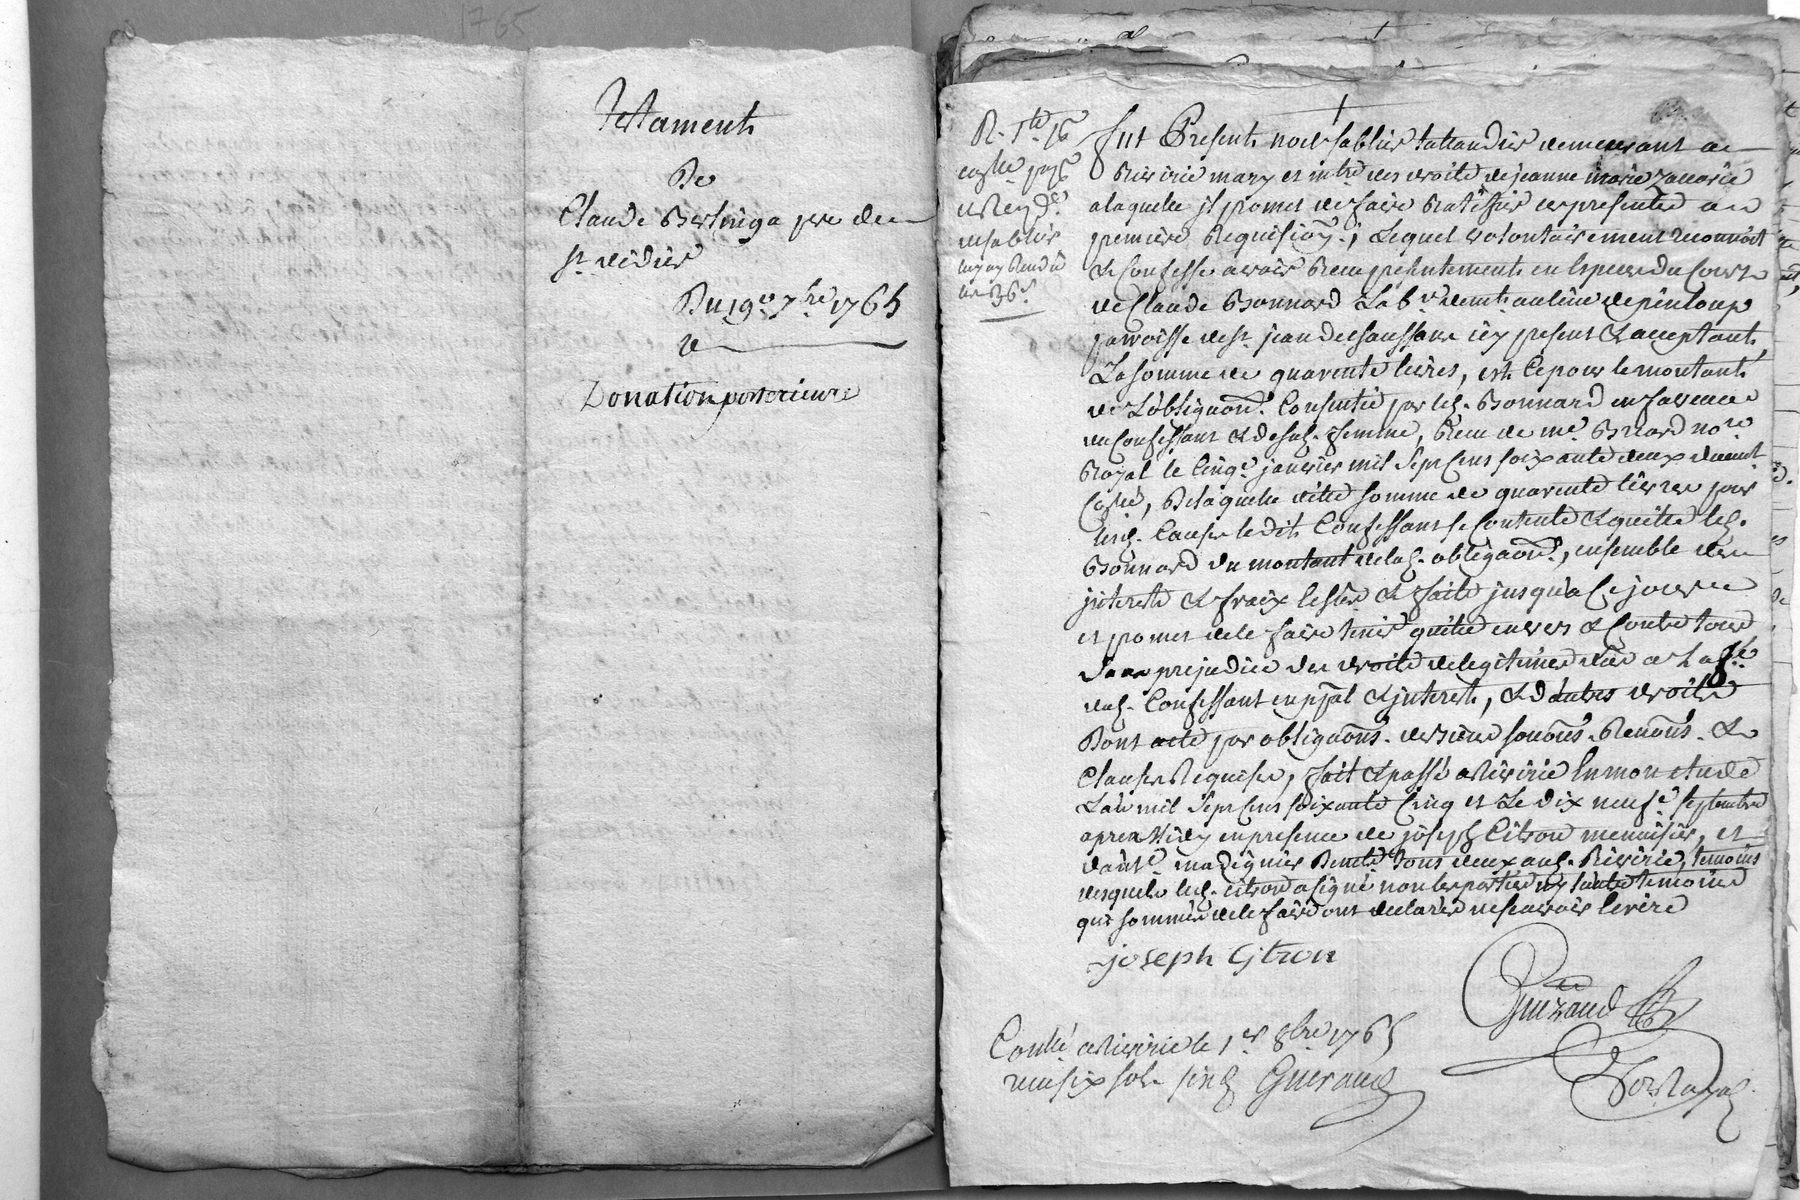 1765
Testament
De
Claude Berlinga pre de
st didier
Du 19e 7bre 1765
Donation posterieure
fut Present noel sablier taliandier demeurant a
Riverie mary et mtre des droits de jeanne marie
a laquelle il promet de faire Ratiffier ces presentes a
premiere Requision ; Lequel volontairement reconnoit
& Confesse avoir Receu presentement en Espece du Cours
de Claude Bonnard Labr demt au lieu de pinloup
parroisse de st jean de chaussan icy present & acceptant
La somme de quarente livres, est Ce pour le montant
de L'obligaon Consentie par led. Bonnard en faveur
du Confessant & de sad. femme, Receu de me Brard nore
Royal le Cinqe janvier mil sept Cens soixante deux duemt
Collé, De laquelle ditte somme de quarente livres pour
lesd. Causes ledit Confessant se Contente & quitte led.
Bonnard du montant de lad. obligaon, ensemble des
jnterets & fraix & faits jusqu'a Ce jour
et promet de le faire tenir quitte envers & Contre tous
sans prejudice des droits de legitimes dus a La fe
dud. Confessant en ppal & jnterets, & d'autres droits
Dont acte par obligaons. Renons. &
Clauses Requises, fait & passé a Riverie En mon etude
L'an mil sept Cens soixante Cinq et Le dix neufe septembre
apres Midy en presence de joseph Citron menuisier, et
tous deux aud. Riverie, temoins
desquels led. Citron a signé non les parties ny l'autre temoins
qui sommés de le faire ont declarés ne sçavoir Ecrire
joseph Citron
Guiraud
Conllé a Riverie le 1er 8bre 1765
Reçu six sols signé Guiraud